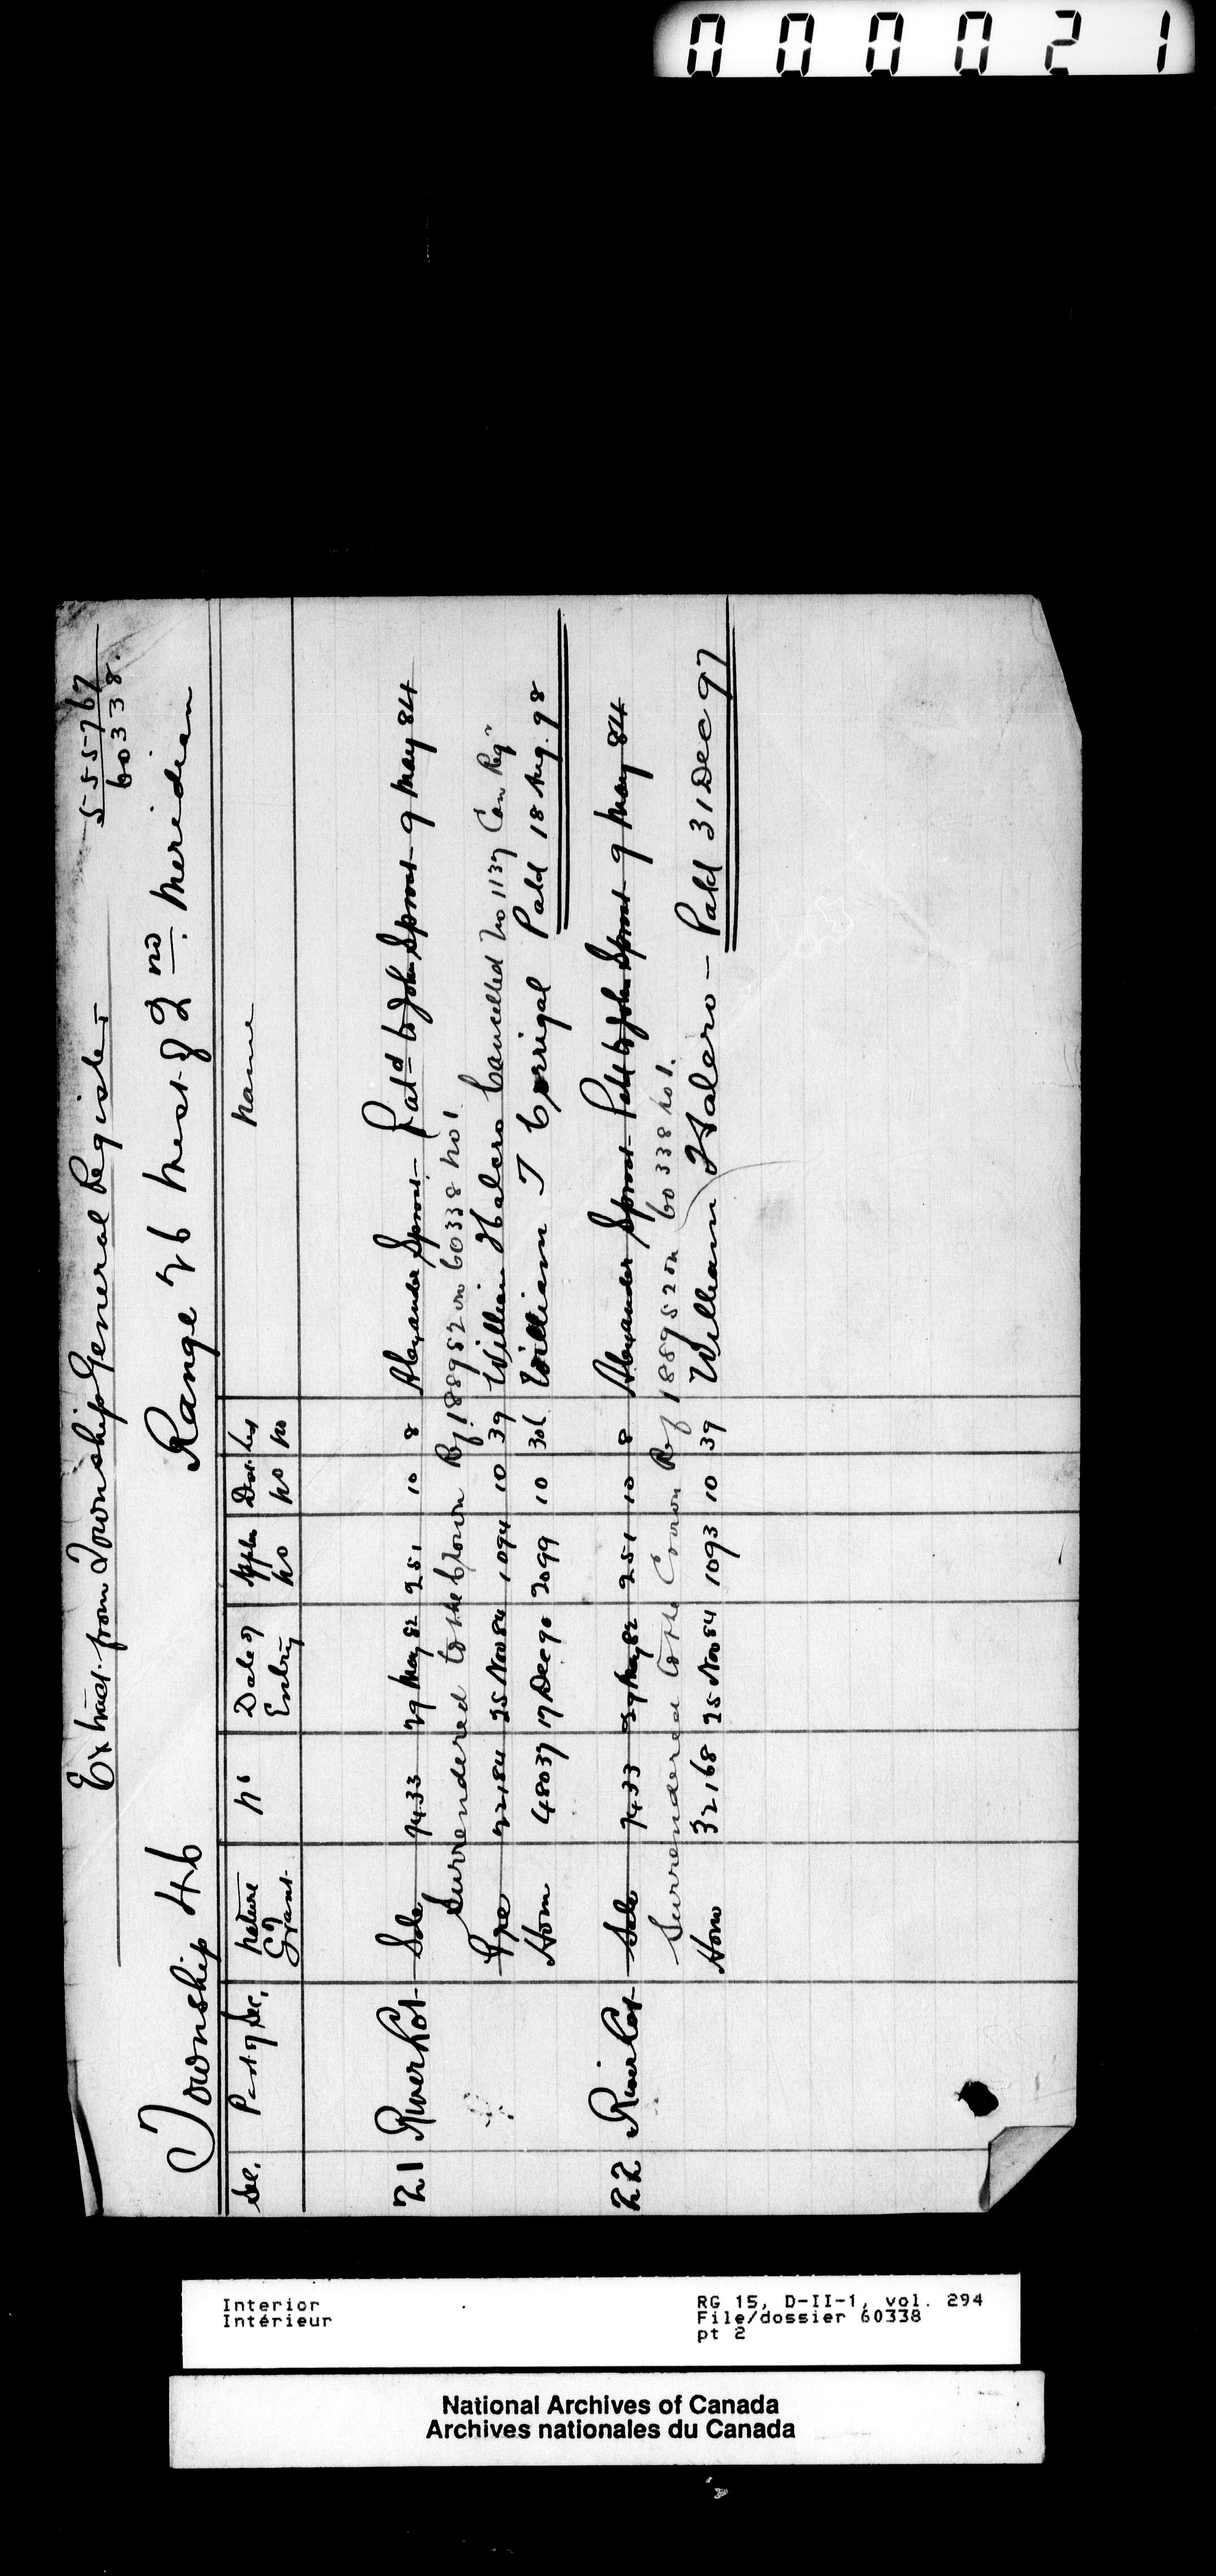 000021
Extract from Township General Register
555767
60338.
Township 46 Range 26 West of 2nd Meridian
Sec. Part of Sec. Nature of Grant No Date of Entry Appln No Dist. No Les No Name
21 River Lot Sale 7433 29 May 82 251 10 8 Alexander Sproat - Patd to John Sproat - 9 May 84
Surrendered to the Crown Ref. 188952 on 60338 No 1.
Ppe 22184 25 Nov 84 1094 10 39 William Halcro Cancelled No 1137 Can Regr
Hom 48037 17 Dec 90 2099 10 301 William T Corrigal Patd 18 Aug. 98
22 River Lot Sale 7433 29 May 82 251 10 8 Alexander Sproat - Patd to John Sproat - 9 May 84
Surrendered to the Crown Ref 188952 on 60338 No 1.
Hom 32168 25 Nov 84 1093 10 39 William Halcro - Patd 31 Dec 97
Interior
Intérieur
RG 15, D-II-1, vol. 294
File/dossier 60338
pt 2
National Archives of Canada
Archives nationales du Canada